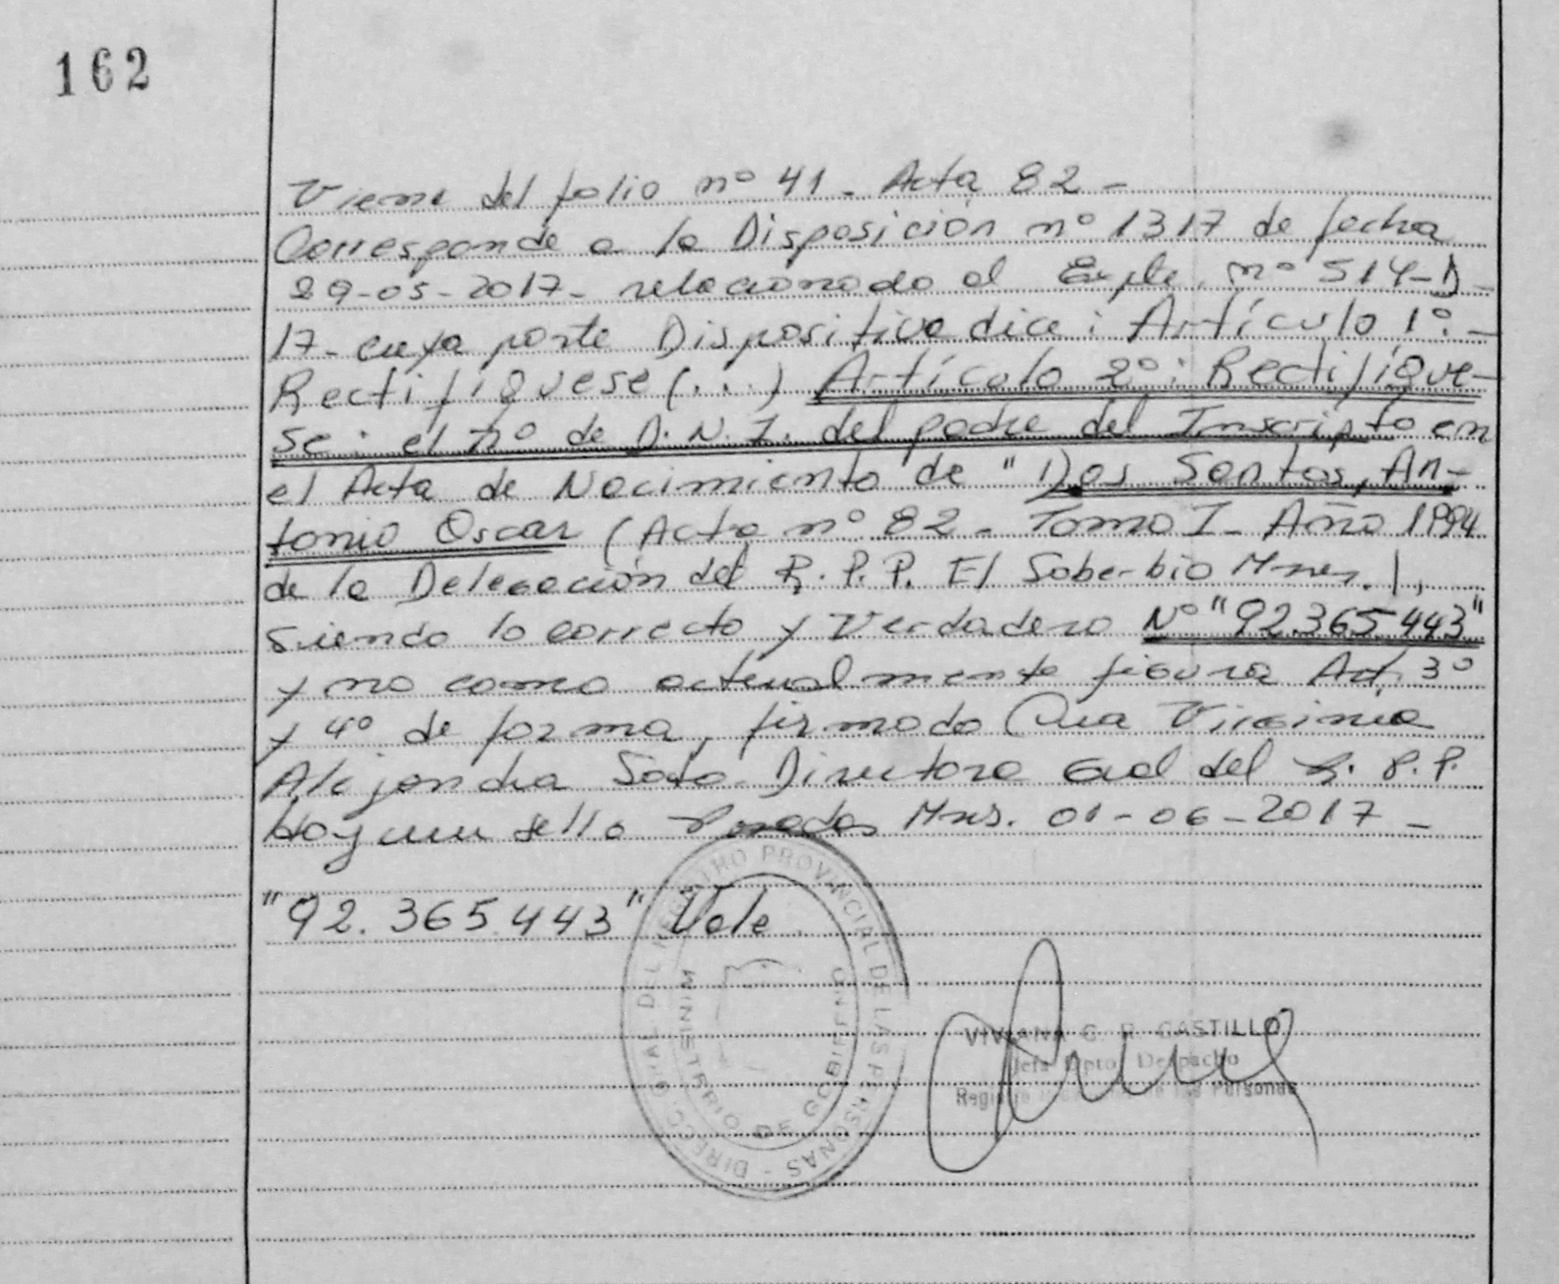 162
Viene del folio nº 41 - Acta 82 -
Corresponde a la Disposición nº 1317 de fecha
29-05-2017- relacionado al Expte. nº 514-D-
17- cuya parte Dispositiva dice: Artículo 1º.-
Rectifíquese (...) Artículo 2º: Rectifíque-
se: el nº de D.N.I. del padre del Inscripto en
el Acta de Nacimiento de "Dos Santos, An-
tonio Oscar (Acta nº 82 - Tomo I - Año 1994
de la Delegación del R.P.P. El Soberbio Mnes.),
siendo lo correcto y Verdadero Nº "92.365.443"
y no como actualmente figura Art. 3º
y 4º de forma, firmado Virginia
Alejandra Soto Directora Gral del R.P.P.
Hay un sello Posadas Mnes. 01-06-2017 -
"92.365.443" Vale
DIRECC. GRAL. DEL REGISTRO PROVINCIAL DE LAS PERSONAS -
MINISTERIO DE GOBIERNO
VIVIANA C. R. CASTILLO
Jefa Dpto. Despacho
Registro de las Personas